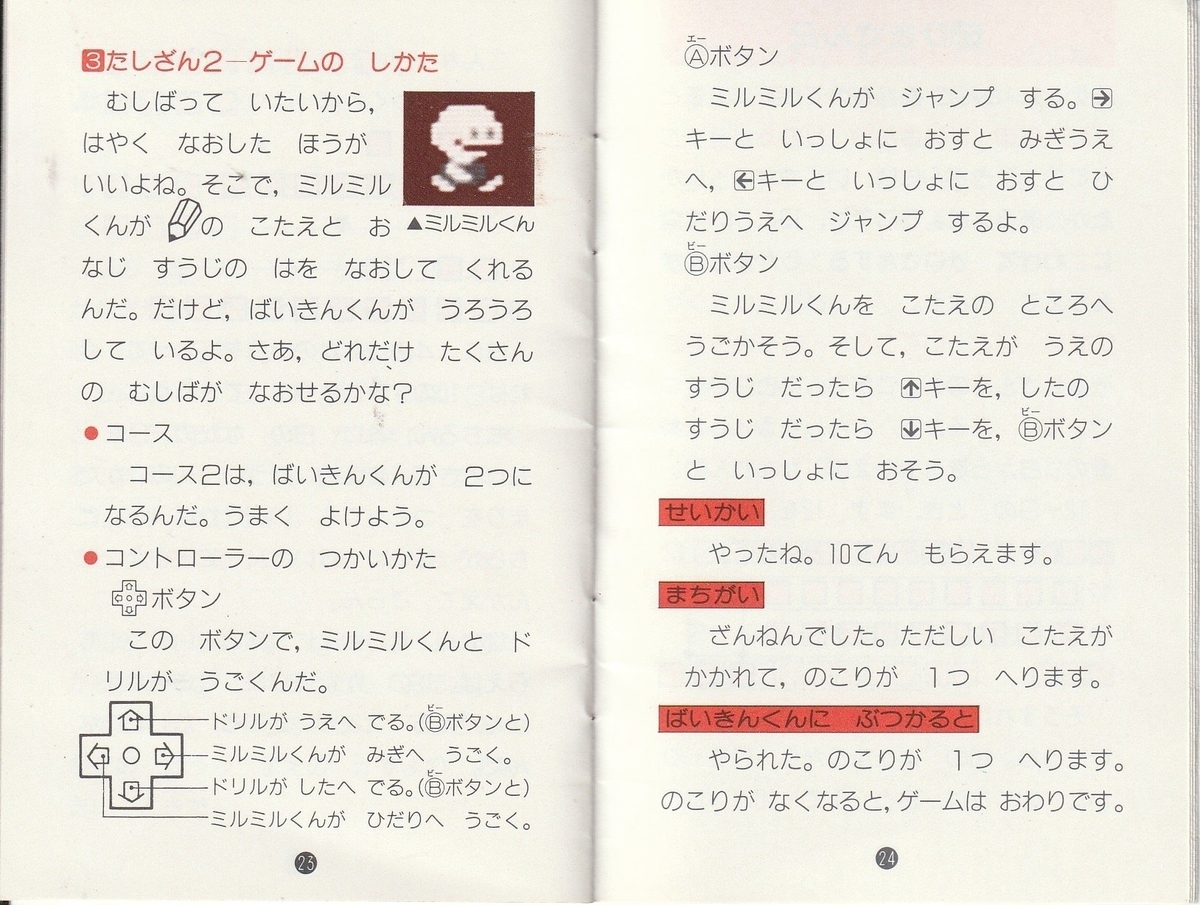 3たしざん2―ゲームの しかた
むしばって いたいから,
はやく なおした ほうが
いいよね。そこで, ミルミル
くんが の こたえと お
▲ミルミルくん
なじ すうじの はを なおして くれる
んだ。だけど, ばいきんくんが うろうろ
して いるよ。さあ, どれだけ たくさん
の むしばが なおせるかな?
●コース
コース2は, ばいきんくんが 2つに
なるんだ。うまく よけよう。
●コントローラーの つかいかた
ボタン
この ボタンで, ミルミルくんと ド
リルが うごくんだ。
ドリルが うえへ でる。(Ⓑボタンと)
ビー
ミルミルくんが みぎへ うごく。
ドリルが したへ でる。(Ⓑボタンと)
ビー
ミルミルくんが ひだりへ うごく。
23
エー
Ⓐボタン
ミルミルくんが ジャンプ する。→
キーと いっしょに おすと みぎうえ
へ, ←キーと いっしょに おすと ひ
だりうえへ ジャンプ するよ。
ビー
Ⓑボタン
ミルミルくんを こたえの ところへ
うごかそう。そして, こたえが うえの
すうじ だったら ↑キーを, したの
すうじ だったら ↓キーを, Ⓑボタン
ビー
と いっしょに おそう。
せいかい
やったね。10てん もらえます。
まちがい
ざんねんでした。ただしい こたえが
かかれて, のこりが 1つ へります。
ばいきんくんに ぶつかると
やられた。のこりが 1つ へります。
のこりが なくなると, ゲームは おわりです。
24